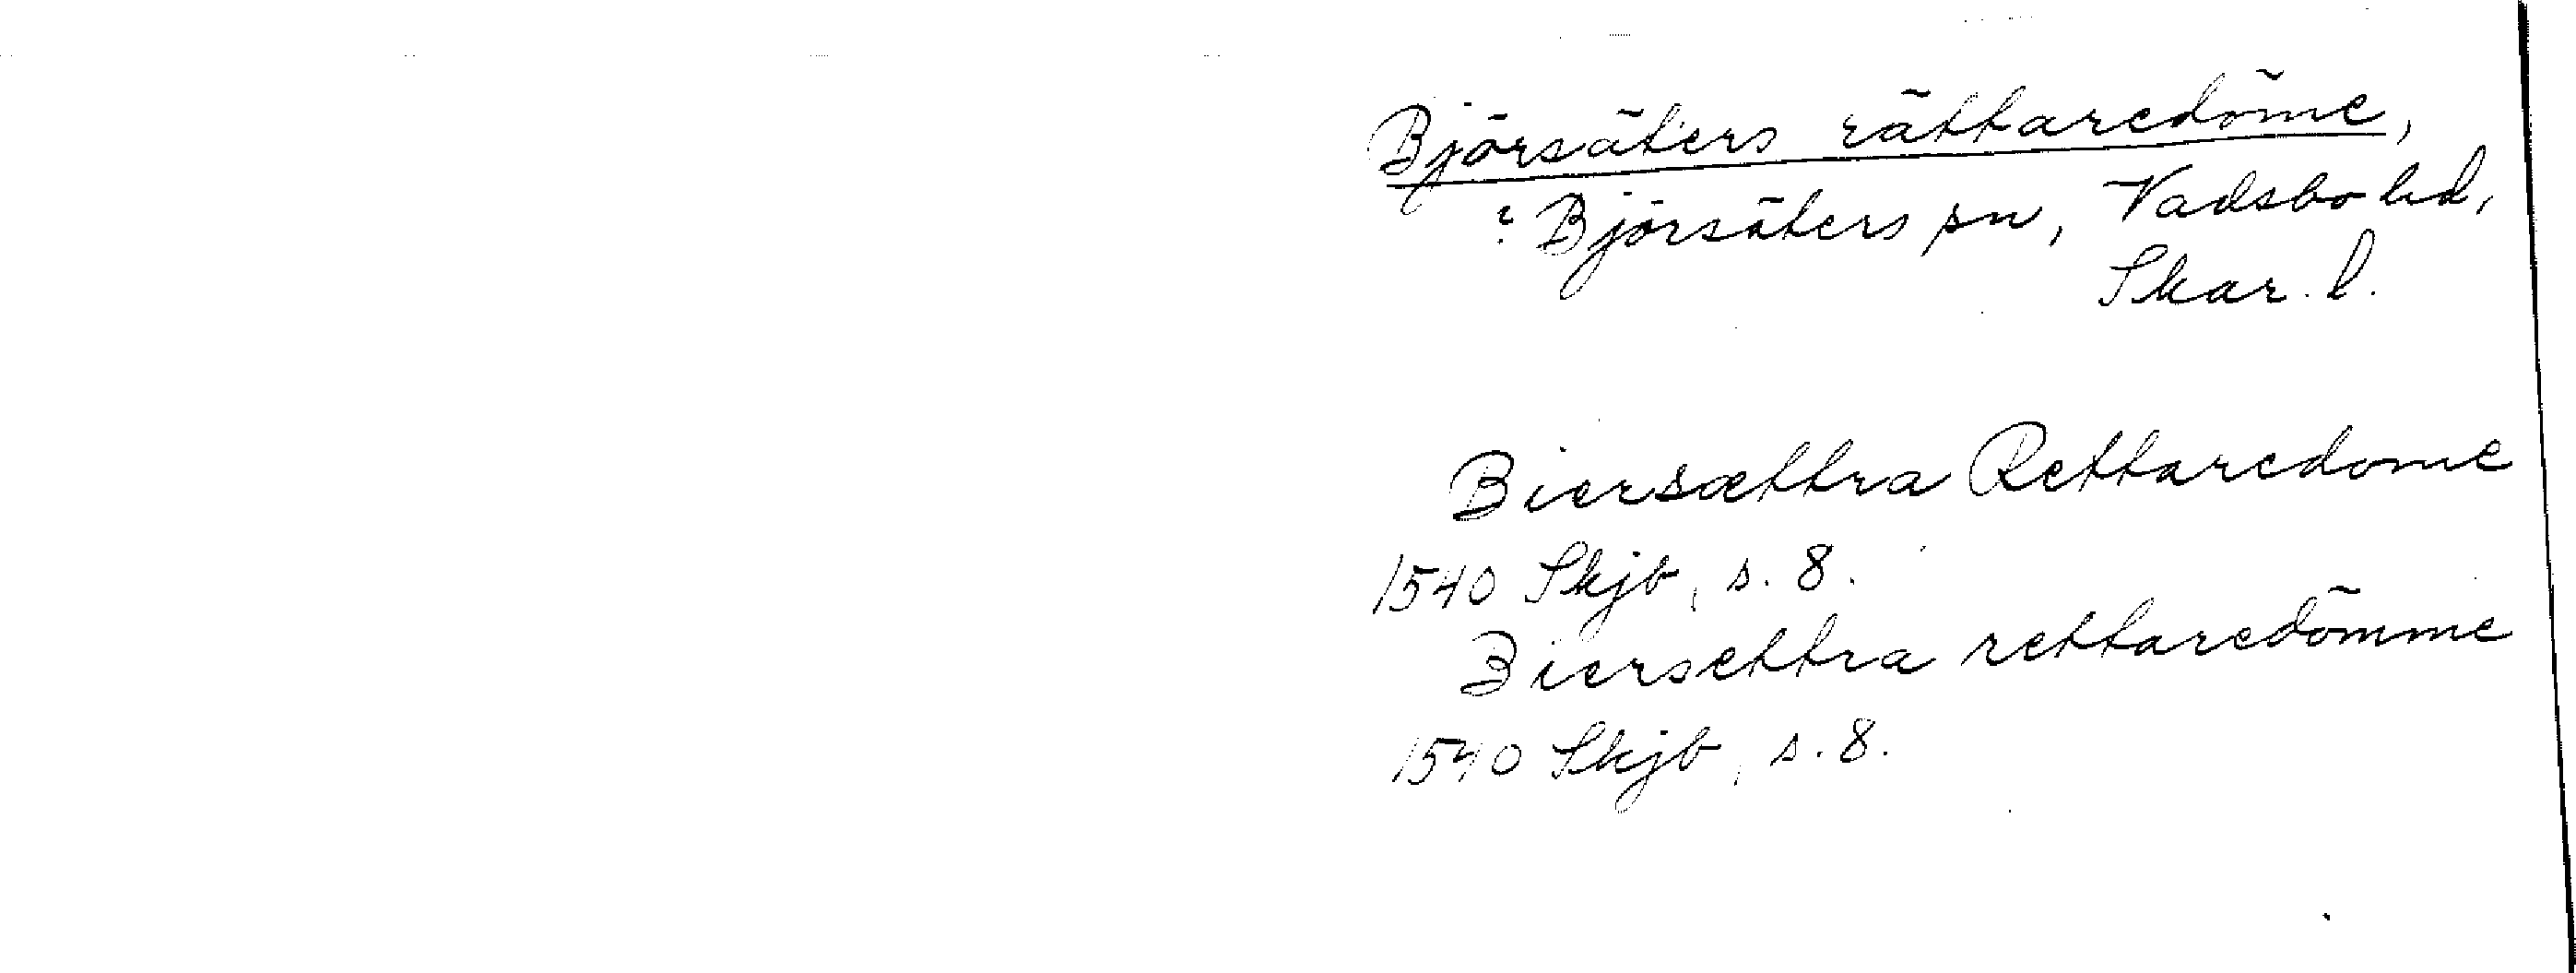 Björsäters rättaredöme,
? Björsäters sn, Vadsbo hd,
Skar. l.
Biersættra Rettaredome
1540 Skjb, s. 8.
Biersettra rettaredömme
1540 Skjb, s. 8.